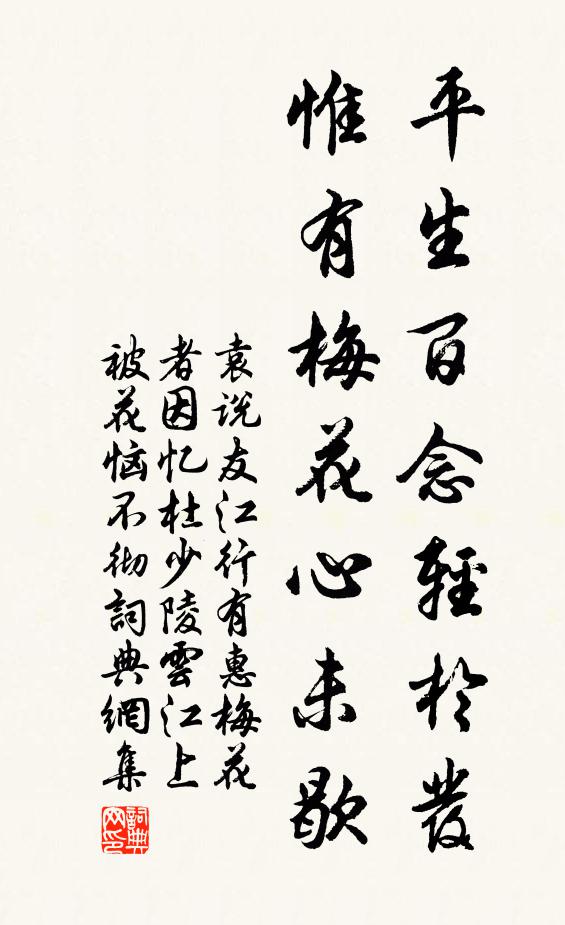 平生百念輕於發
惟有梅花心未歇
袁説友江行有惠梅花
者因忆杜少陵雲江上
被花恼不彻詞典網集
詞典网印